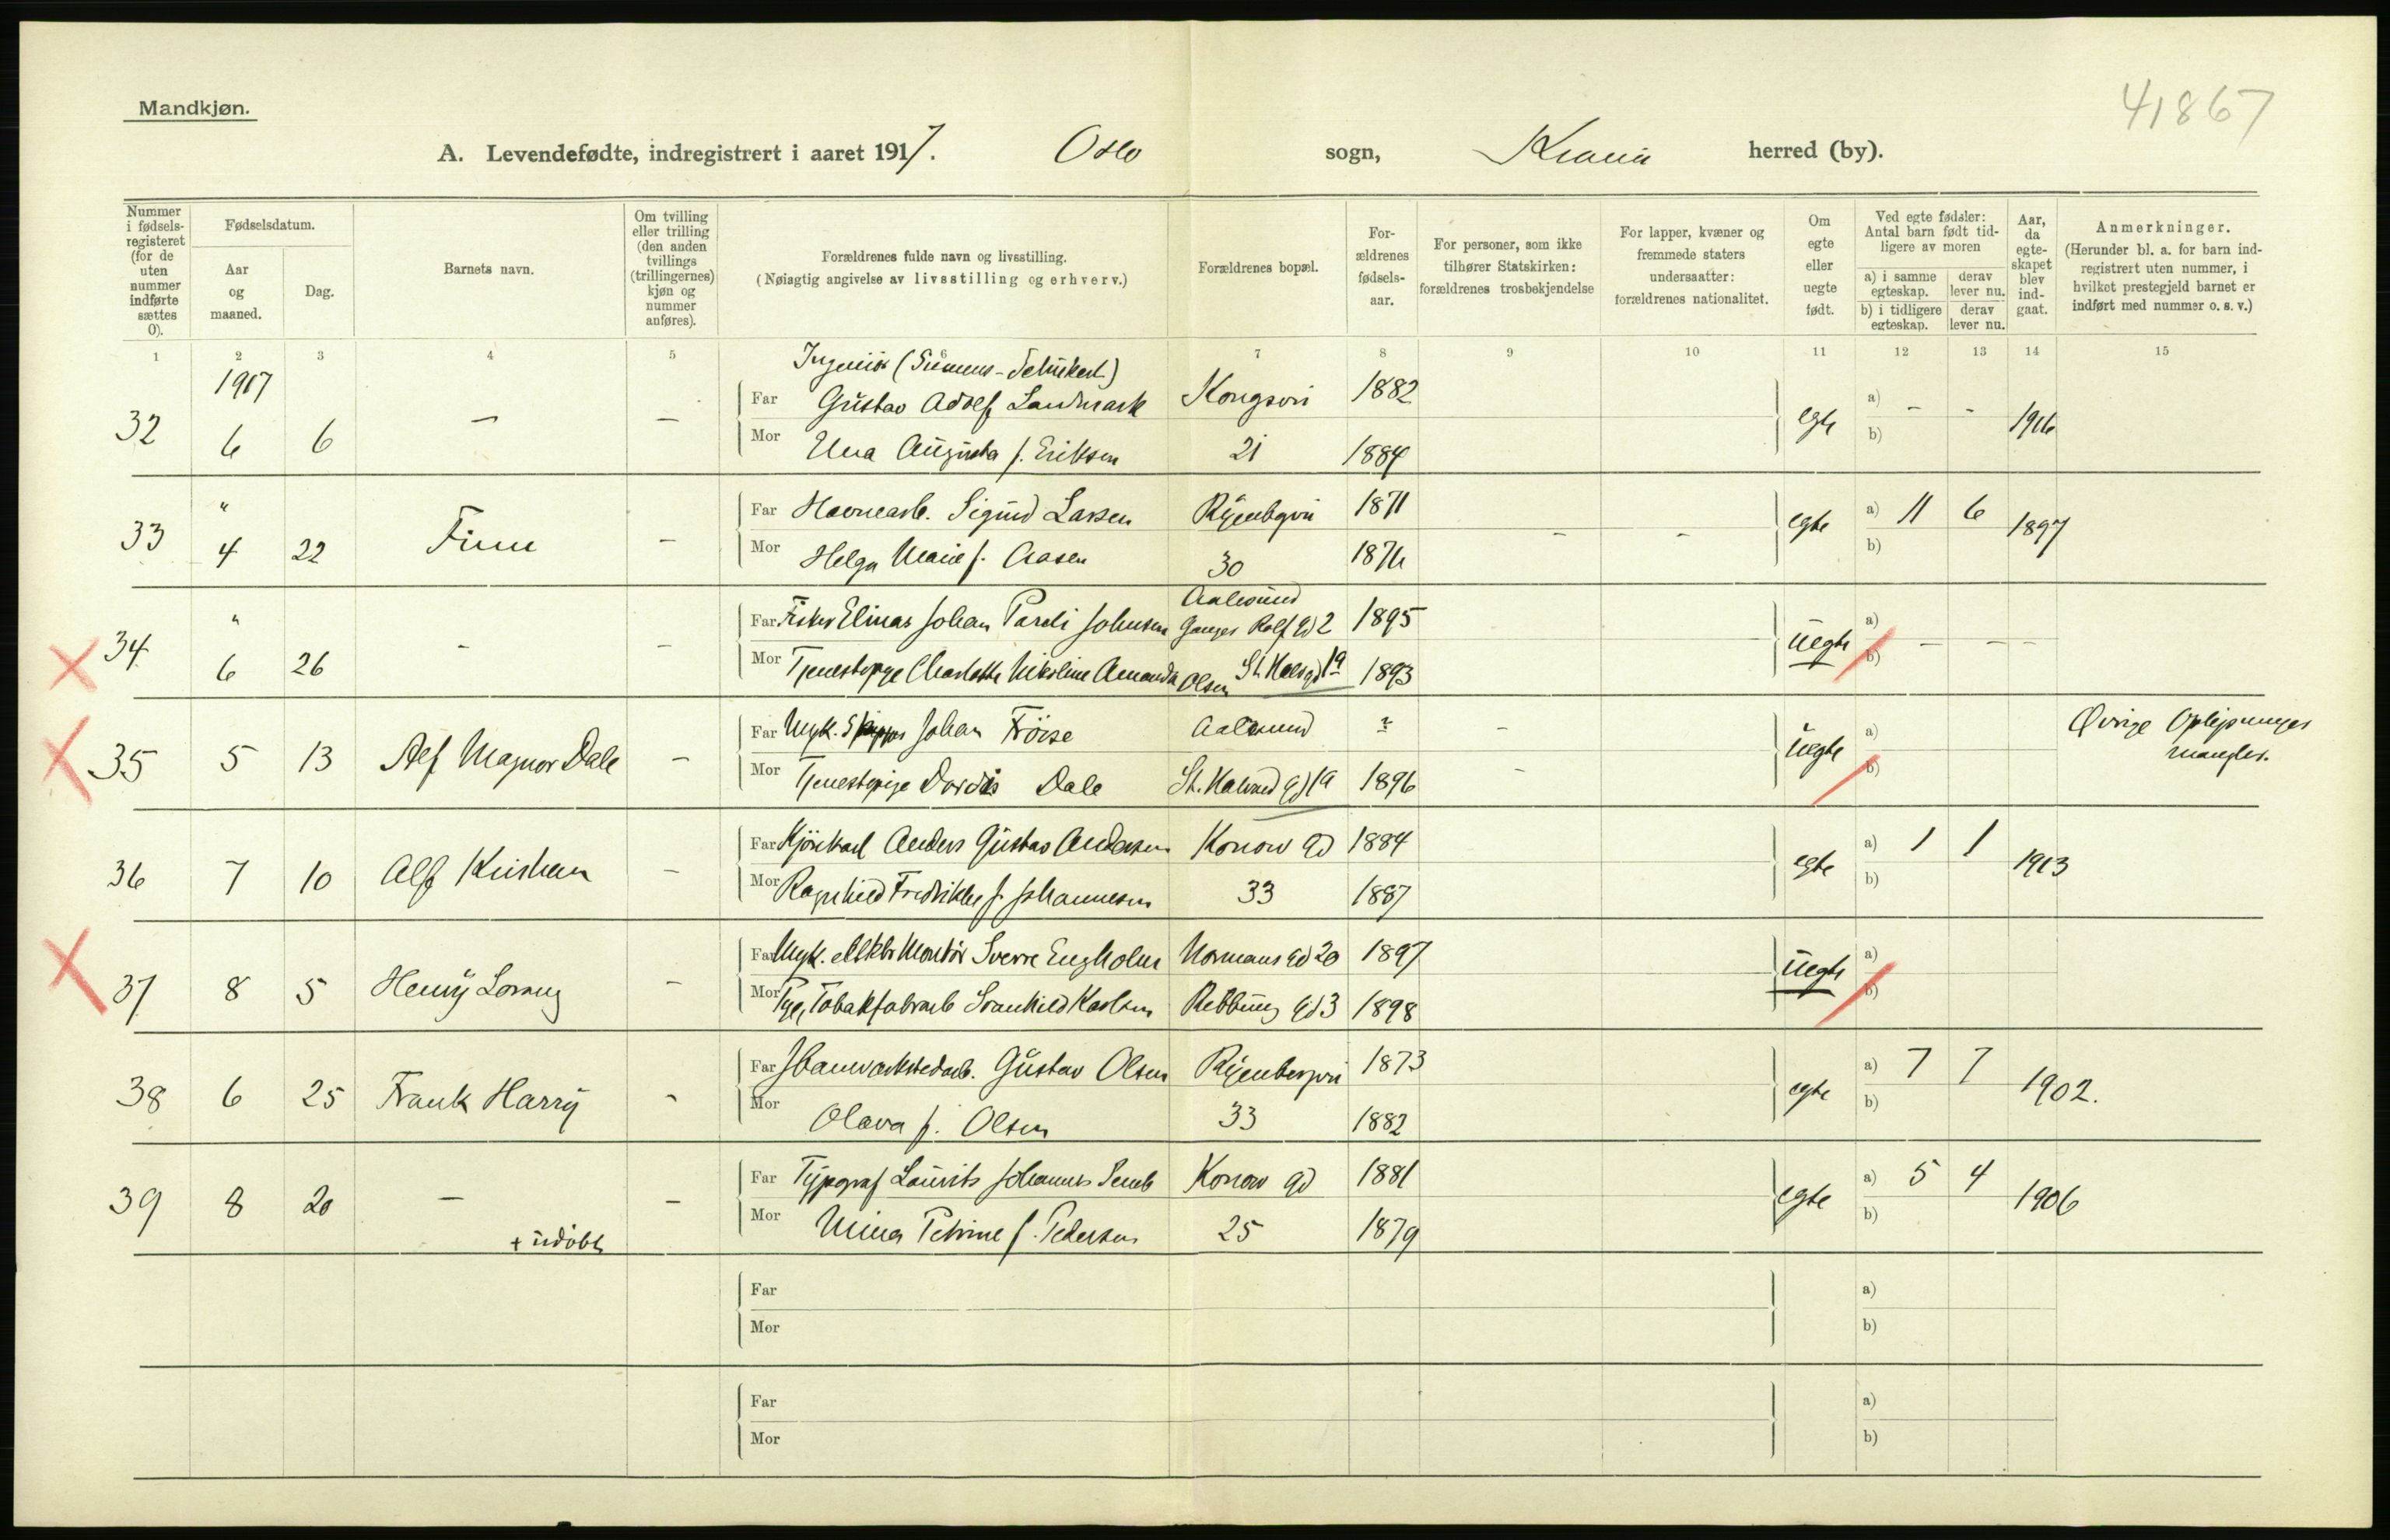 41867
Mandkjøn.
A. Levendefødte, indregistrert i aaret 1917. Oslo sogn, Krania herred (by).
Nummer i fødselsregisteret (for de uten nummer indførte sættes 0).
Fødselsdatum.
Aar og maaned.
Dag.
Barnets navn.
Om tvilling eller trilling (den anden tvillings (trillingernes) kjøn og nummer anføres).
Forældrenes fulde navn og livsstilling.
(Nøiagtig angivelse av livsstilling og erhverv.)
Forældrenes bopæl.
Forældrenes fødselsaar.
For personer, som ikke tilhører Statskirken: forældrenes trosbekjendelse
For lapper, kvæner og fremmede staters undersaatter: forældrenes nationalitet.
Om egte eller uegte født.
Ved egte fødsler: Antal barn født tidligere av moren
a) i samme egteskap. derav lever nu.
b) i tidligere egteskap. derav lever nu.
Aar, da egteskapet blev indgaat.
Anmerkninger.
(Herunder bl. a. for barn indregistrert uten nummer, i hvilket prestegjeld barnet er indført med nummer o. s. v.)
1 2 3 4 5 6 7 8 9 10 11 12 13 14 15
1917
Ingeniör (Siemens-Schückert)
32 6 6 — — Far Gustav Adolf Landmark Kongsvei 1882 egte a) - - 1916
Mor Una Augusta f. Eriksen 21 1884 b)
33 " 4 22 Finn - Far Havnearb. Sigurd Larsen Ryenbgvei 1871 - - egte a) 11 6 1897
Mor Helga Marie f. Aasen 30 1876 b)
Aalesund
34 " 6 26 - - Far Fisker Elinar Johan Pareli Johnsen Ganger Rolf Gd 2 1895 uegte a) - - -
Mor Tjenestepige Charlotte Nikoline Amanda Olsen St. Halvgd 19 1893 b)
35 5 13 Alf Magnor Dale - Far Ungk. Skipper Johan Fröise Aalesund ? - uegte a) Øvrige Oplysninger mangler.
Mor Tjenestepige Dordis Dale St. Halvard Gd 19 1896 - b)
36 7 10 Alf Kristian - Far Kjörekarl Anders Gustav Andersen Konow Gd 1884 egte a) 1 1 1913
Mor Ragnhild Fredrikke f. Johannesen 33 1887 b)
37 8 5 Henry Lorang - Far Ungk. elektr Montör Sverre Engholm Normans Gd 20 1897 uegte a)
Mor Pge, Tobakfabrarb Svanhild Karlsen Rebbung Gd 3 1898 b)
38 6 25 Frank Harry - Far Jbanverkstedarb. Gustav Olsen Ryenbergvei 1873 egte a) 7 7 1902.
Mor Olava f. Olsen 33 1882 b)
39 8 20 — - Far Typograf Laurits Johannes Semb Konow Gd 1881 egte a) 5 4 1906
+ udöbt Mor Mina Petrine f. Pedersen 25 1879 b)
Far a)
Mor b)
Far a)
Mor b)